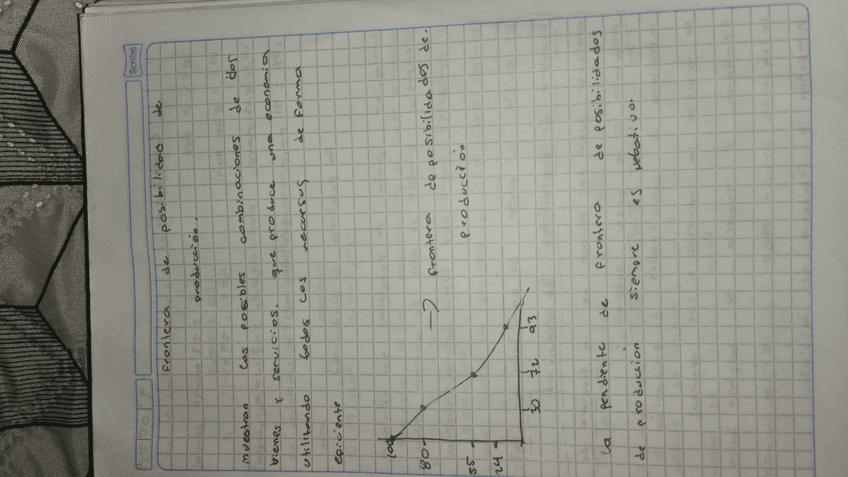 Scribe
frontera de posibilidad de
producción.
muestran las posibles combinaciones de dos
bienes y servicios. que produce una economia
utilizando todos los recursos de forma
eficiente
→ frontera de posibilidades de.
producción
100
80
55
24
30 72 93
la pendiente de frontera de posibilidades
de producción siempre es nebativo.